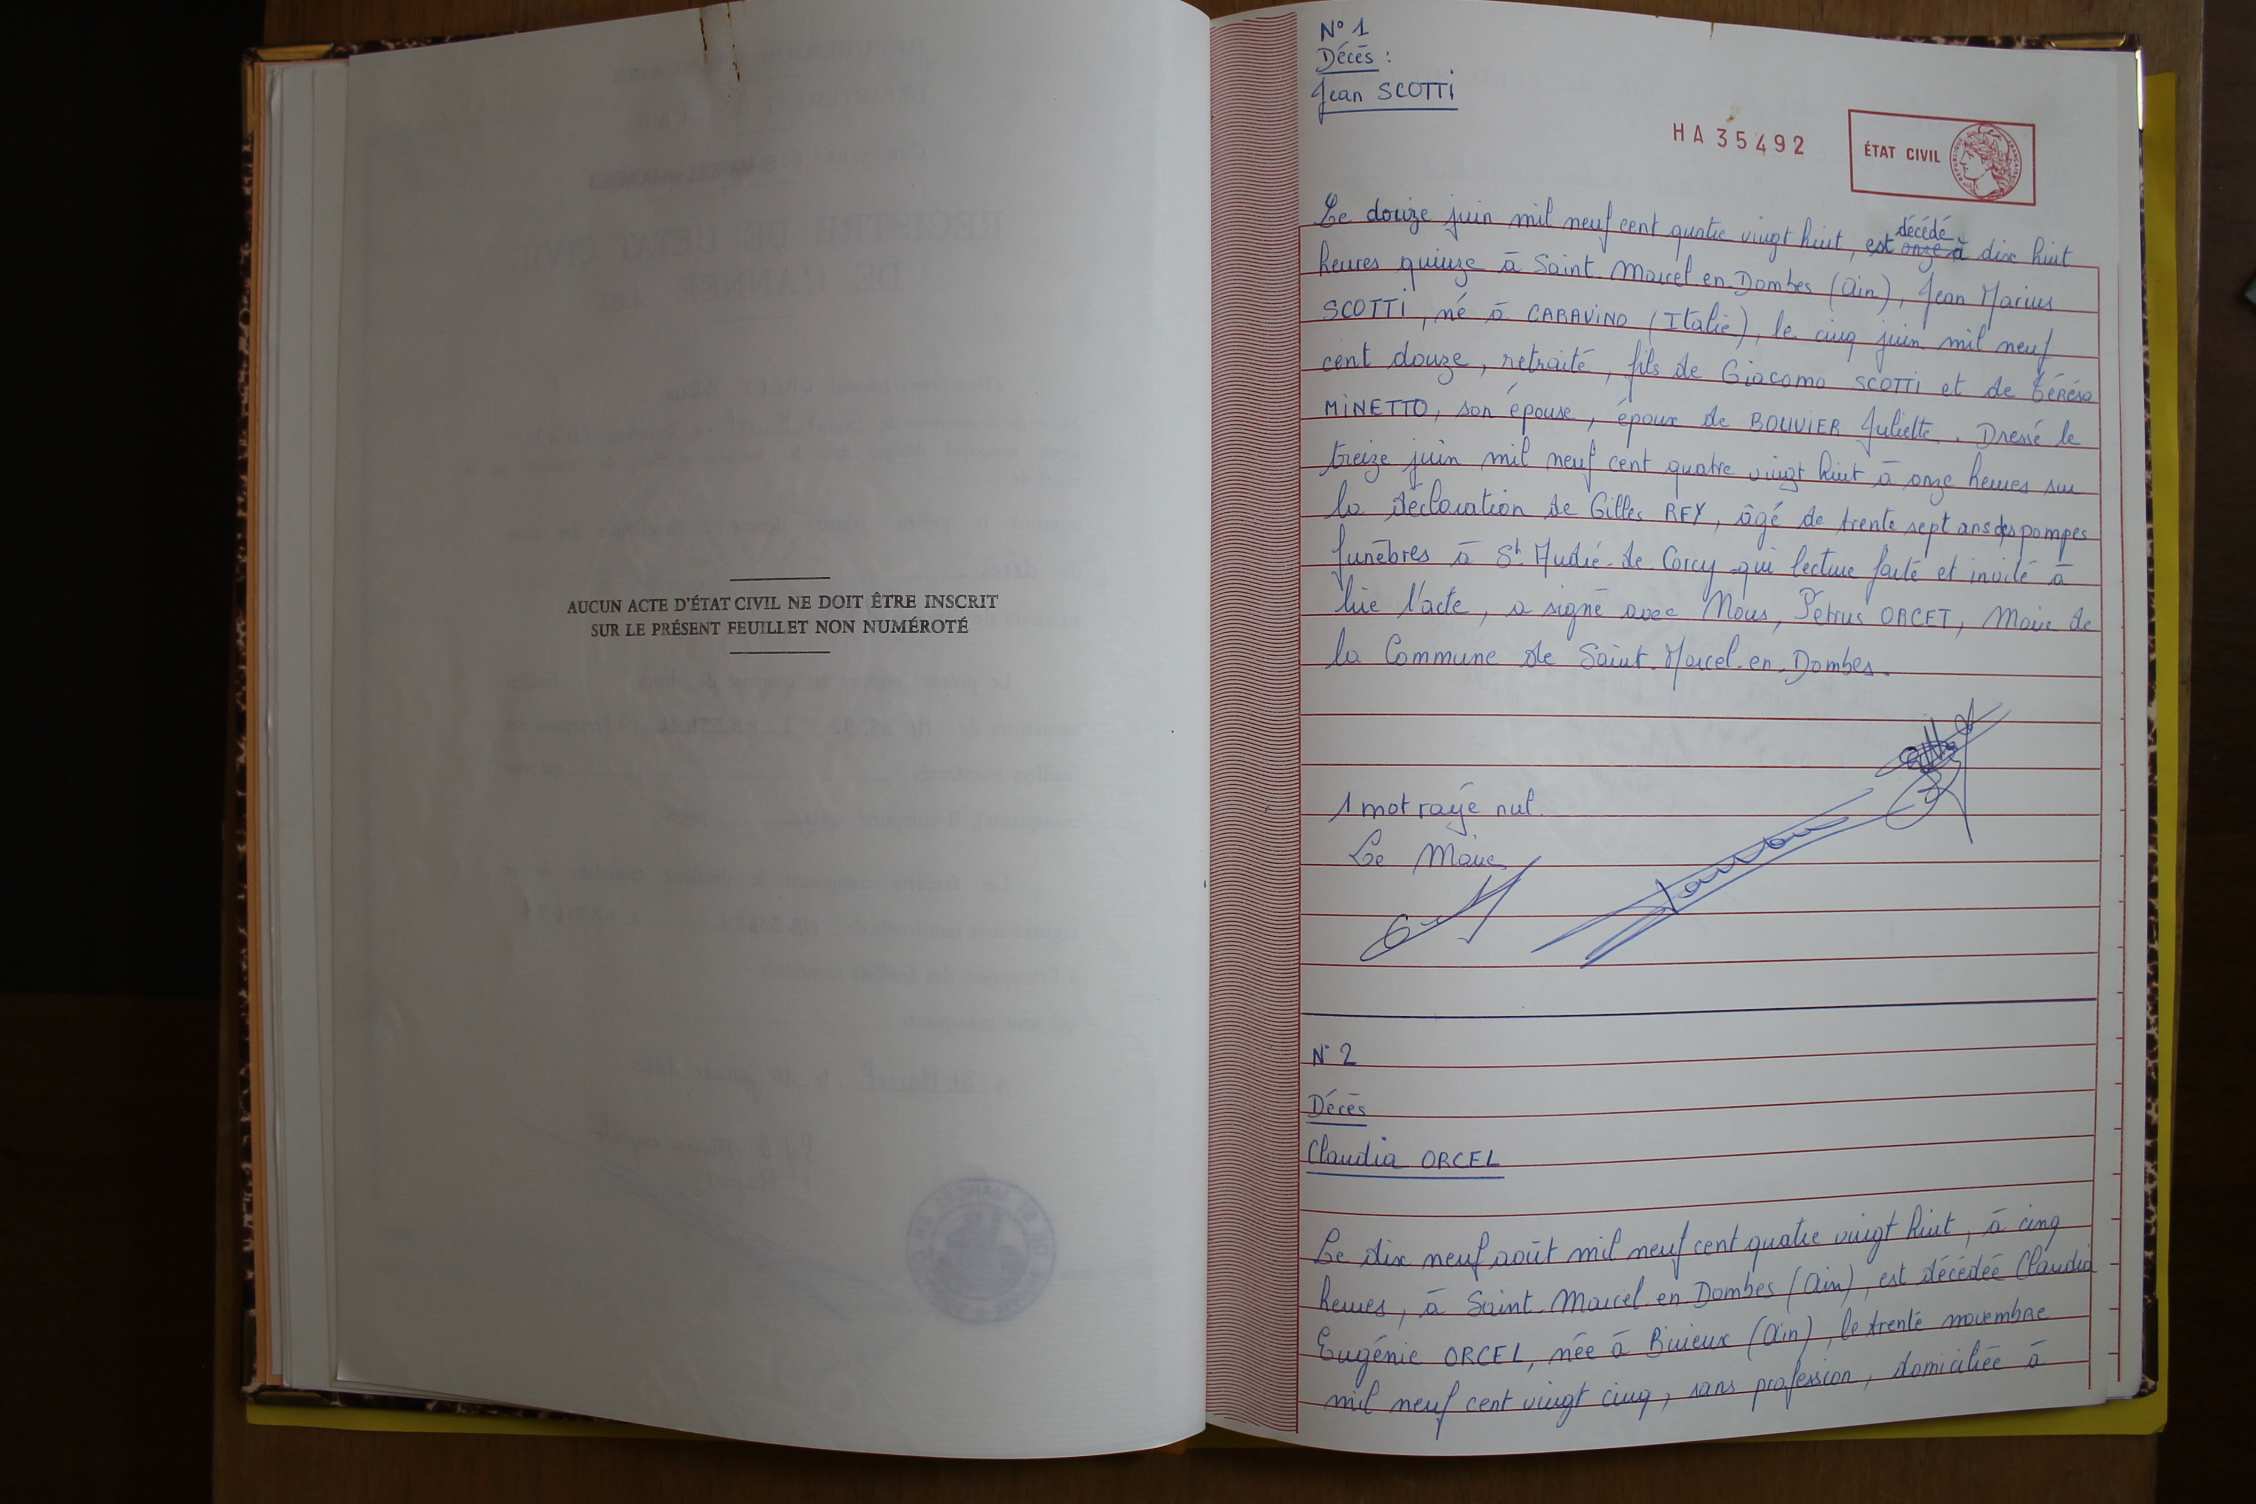 AUCUN ACTE D'ÉTAT CIVIL NE DOIT ÊTRE INSCRIT
SUR LE PRÉSENT FEUILLET NON NUMÉROTÉ
N° 1
Décès :
Jean SCOTTI
HA 35492
ÉTAT CIVIL
Le douze juin mil neuf cent quatre vingt huit, est décédé à dix huit
heures quinze à Saint Marcel en Dombes (Ain), Jean Marius
SCOTTI, né à CARAVINO (Italie), le cinq juin mil neuf
cent douze, retraité, fils de Giacomo SCOTTI et de Térésa
MINETTO, son épouse, époux de BOUVIER Juliette. Dressé le
treize juin mil neuf cent quatre vingt huit à onze heures sur
la déclaration de Gilles REY, âgé de trente sept ans des pompes
funèbres à St André de Corcy qui lecture faite et invité à
lire l'acte, a signé avec Nous, Pétrus ORCET, Maire de
la Commune de Saint-Marcel-en-Dombes.
1 mot rayé nul.
Le Maire
N° 2
Décès
Claudia ORCEL
Le dix neuf août mil neuf cent quatre vingt huit, à cinq
heures, à Saint-Marcel en Dombes (Ain), est décédée Claudia
Eugénie ORCEL, née à Birieux (Ain), le trente novembre
mil neuf cent vingt cinq, sans profession, domiciliée à